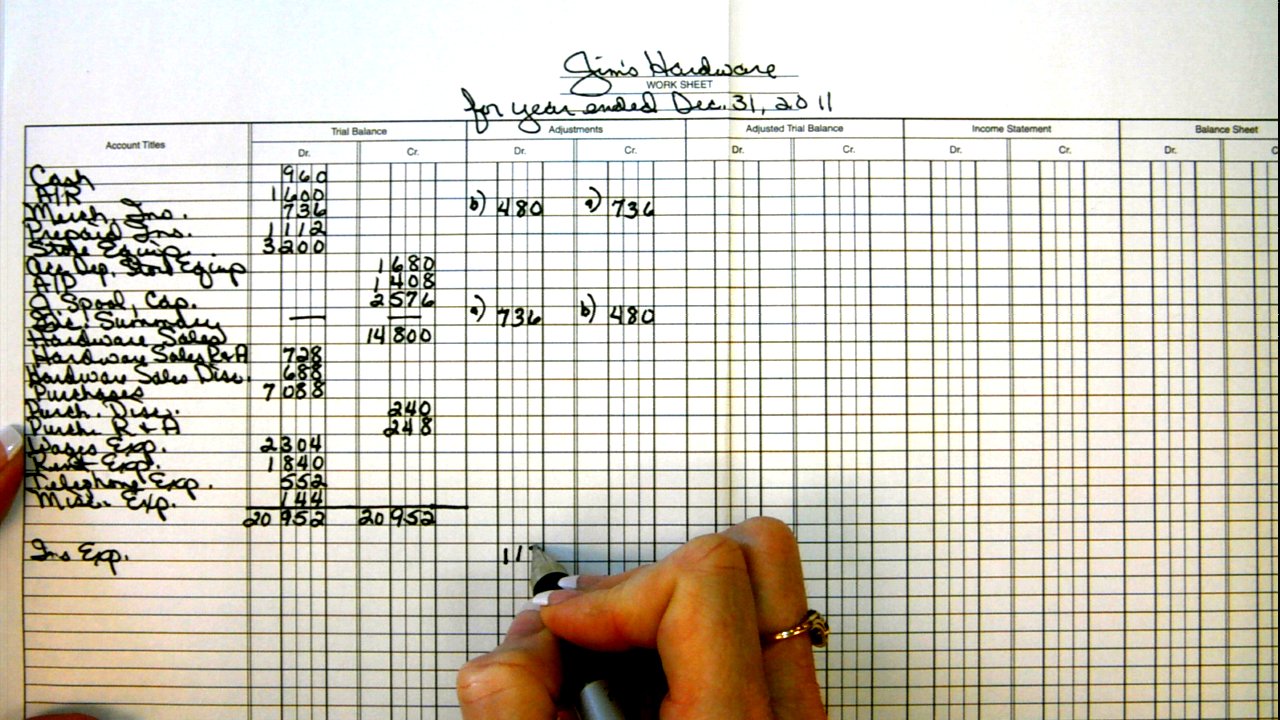 Jim's Hardware
WORK SHEET
for year ended Dec. 31, 2011
Account Titles Trial Balance Adjustments Adjusted Trial Balance Income Statement Balance Sheet
Dr. Cr. Dr. Cr. Dr. Cr. Dr. Cr. Dr. C
Cash 960
A/R 1600
Merch. Inv. 736 b) 480 a) 736
Prepaid Ins. 1112
Store Equip. 3200
Acc. Dep. Store Equip 1680
A/P 1408
J. Spool, Cap. 2576
Inc. Summary — — a) 736 b) 480
Hardware Sales 14800
Hardware Sales R+A 728
Hardware Sales Disc. 688
Purchases 7088
Purch. Disc. 240
Purch. R + A 248
Wages Exp. 2304
Rent Exp. 1840
Telephone Exp. 552
Misc. Exp. 144
20952 20952
Ins Exp. 11